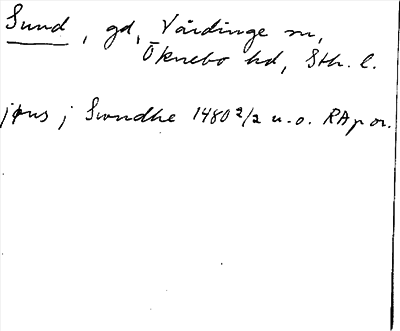 Sund, gd, Vårdinge sn,
Öknebo hd, Sth. l.
jøns j Swndhe 1480 2/2 u.o. RAp or.